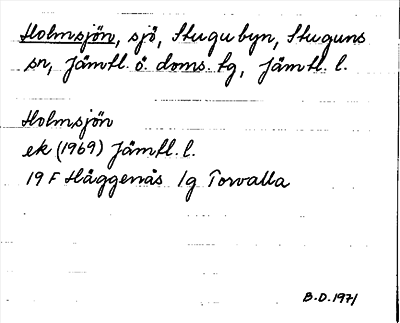 Holmsjön, sjö, Stugubyn, Stuguns
sn, Jämtl. ö. doms. tg, Jämtl. l.
Holmsjön
ek (1969) Jämtl. l.
19 F Häggenås 1g Torvalla
B.D. 1971